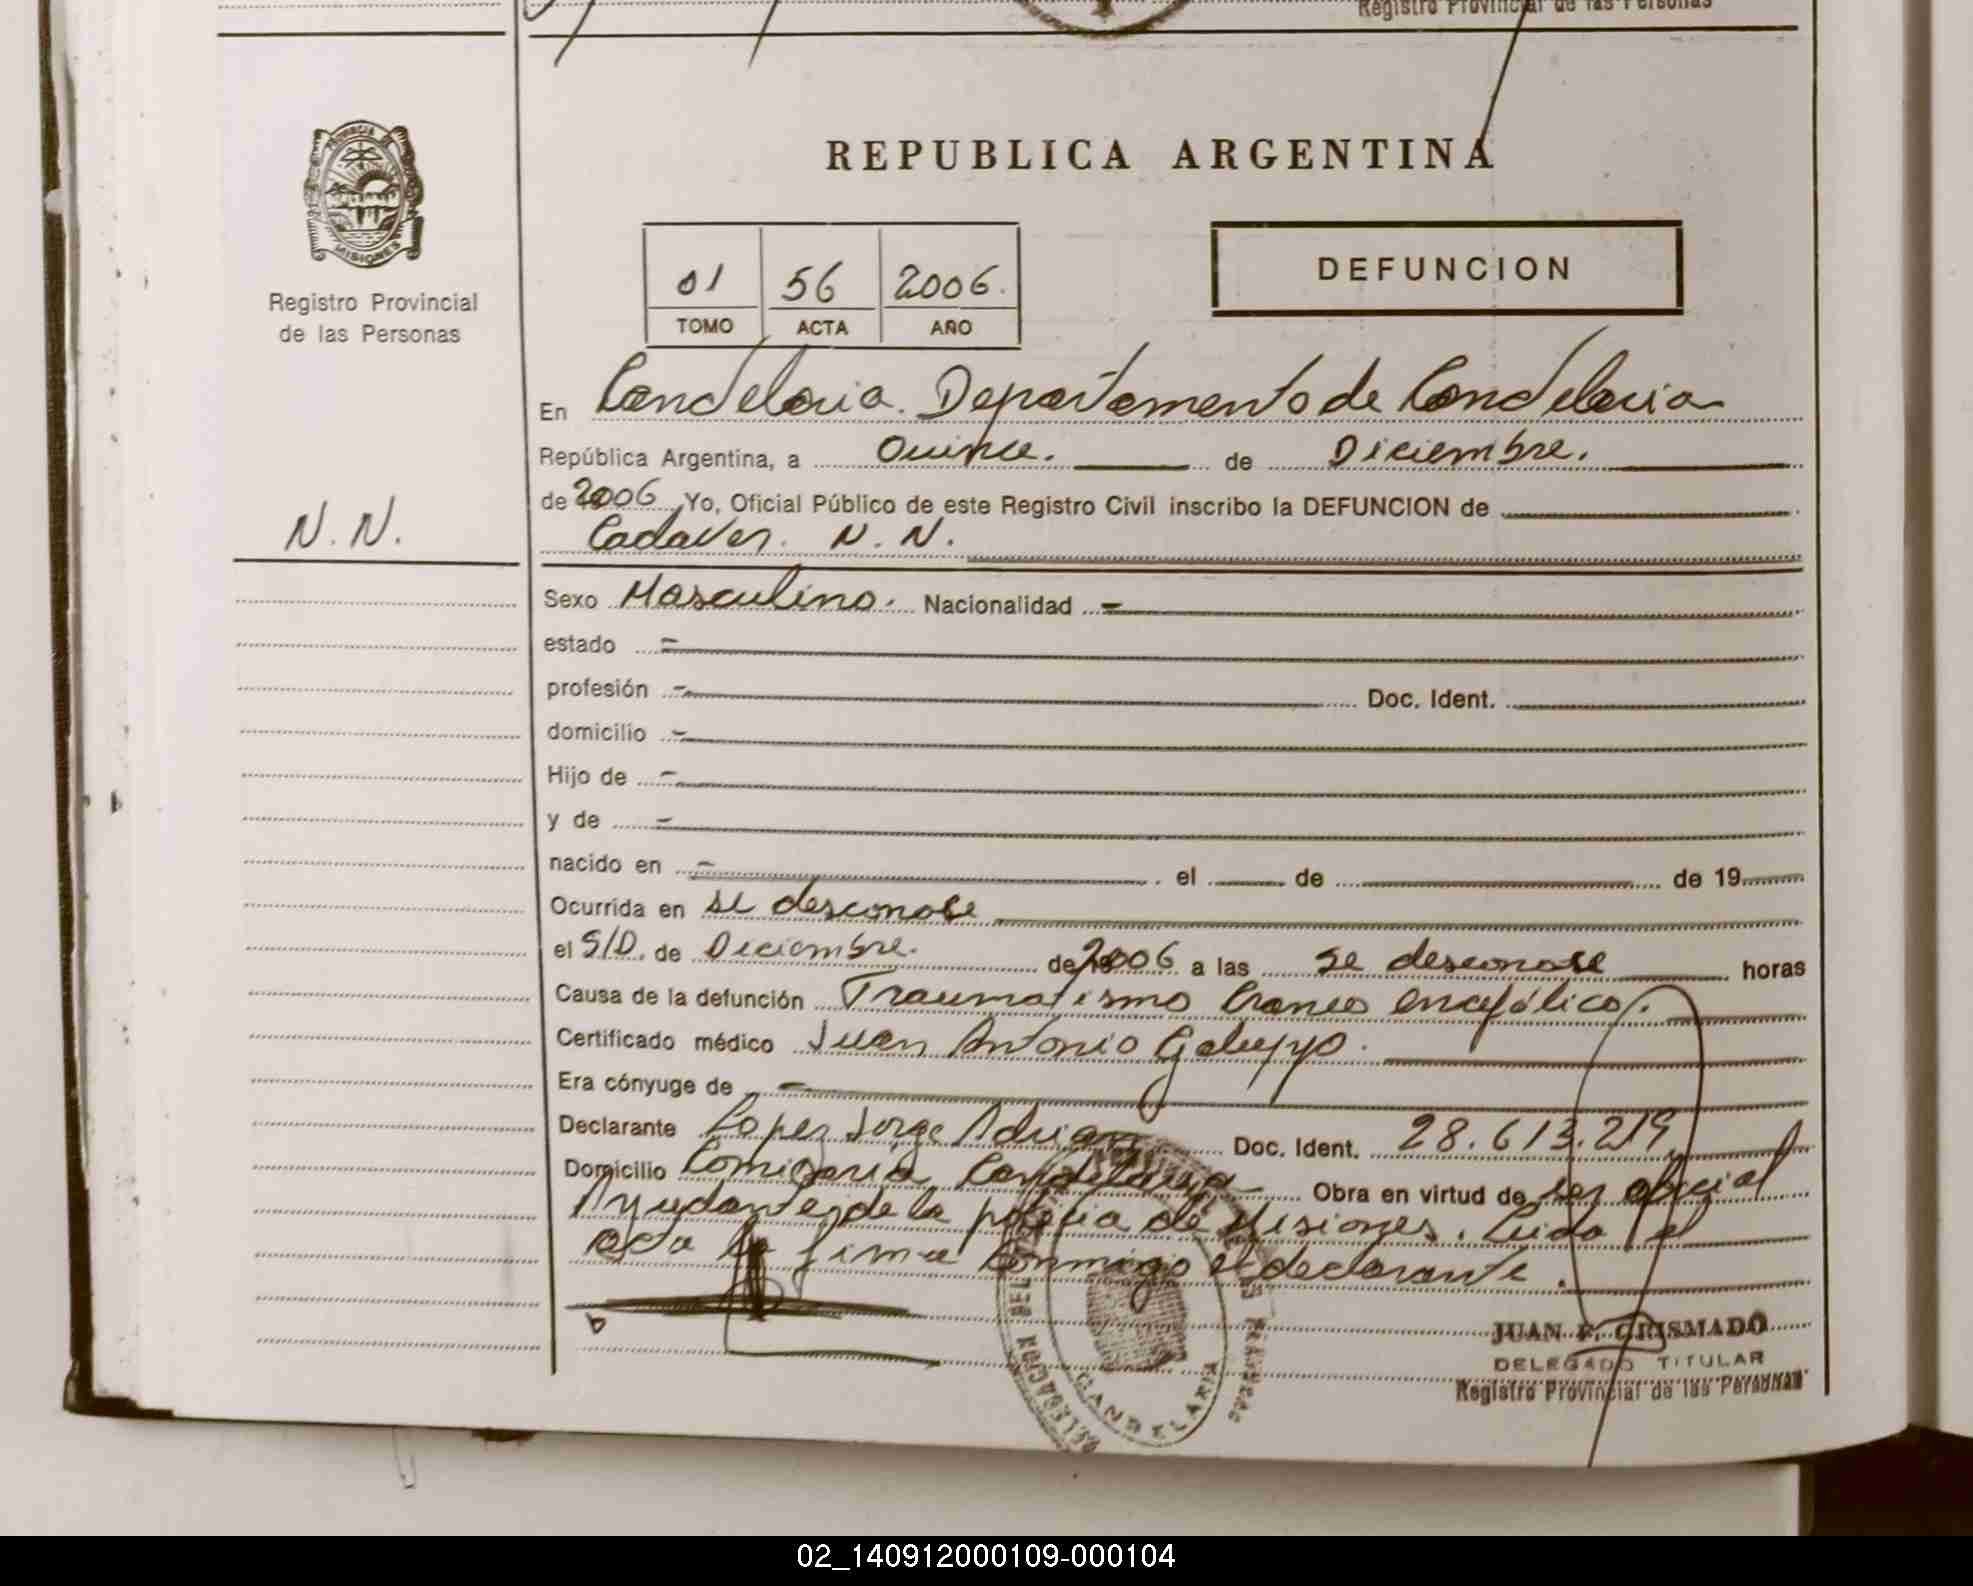 Registro Provincial de las Personas
REPUBLICA ARGENTINA
PROVINCIA DE
MISIONES
Registro Provincial
de las Personas
01 56 2006.
TOMO ACTA AÑO
DEFUNCION
En Candelaria. Departamento de Candelaria
República Argentina, a Quince. de Diciembre.
de 2006 Yo, Oficial Público de este Registro Civil inscribo la DEFUNCION de
N.N.
Cadaver. N.N.
Sexo Masculino. Nacionalidad -
estado -
profesión - Doc. Ident.
domicilio -
Hijo de -
y de -
nacido en - el de de 19
Ocurrida en se desconose
el S/D. de Diciembre. de 2006 a las se desconose horas
Causa de la defunción Traumatismo Craneo encefálico.
Certificado médico Juan Antonio Galuppo.
Era cónyuge de -
Declarante Lopez Jorge Adrian Doc. Ident. 28.613.219
Domicilio Comisaria Candelaria Obra en virtud de ser oficial
Ayudante de la policia de Misiones. Leida el
acta la firma conmigo el declarante.
DELEGACION
CANDELARIA
JUAN F. CRISMADO
DELEGADO TITULAR
Registro Provincial de las Personas
02_140912000109-000104